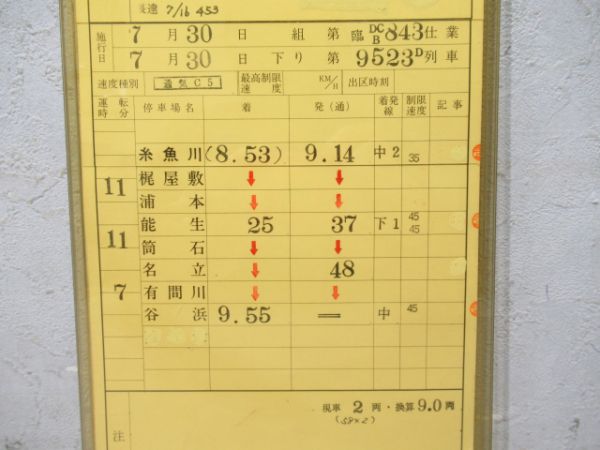 長達 7/16 453
施行日 7 月 30 日 組 第 臨 DC B 843 仕業
7 月 30 日 下り 第 9523D 列車
速度種別 通気C5 最高制限速度 KM/H 出区時刻
運転時分 停車場名 着 発(通) 着発線 制限速度 記事
糸魚川 (8.53) 9.14 中2 35
梶屋敷 ↓ ↓
11
浦本 ↓ ↓
能生 25 37 下1 45 45
11
筒石 ↓ ↓
名立 ↓ 48
7 有間川 ↓ ↓
谷浜 9.55 = 中 45
現車 2 両・換算 9.0 両
(58×2)
注